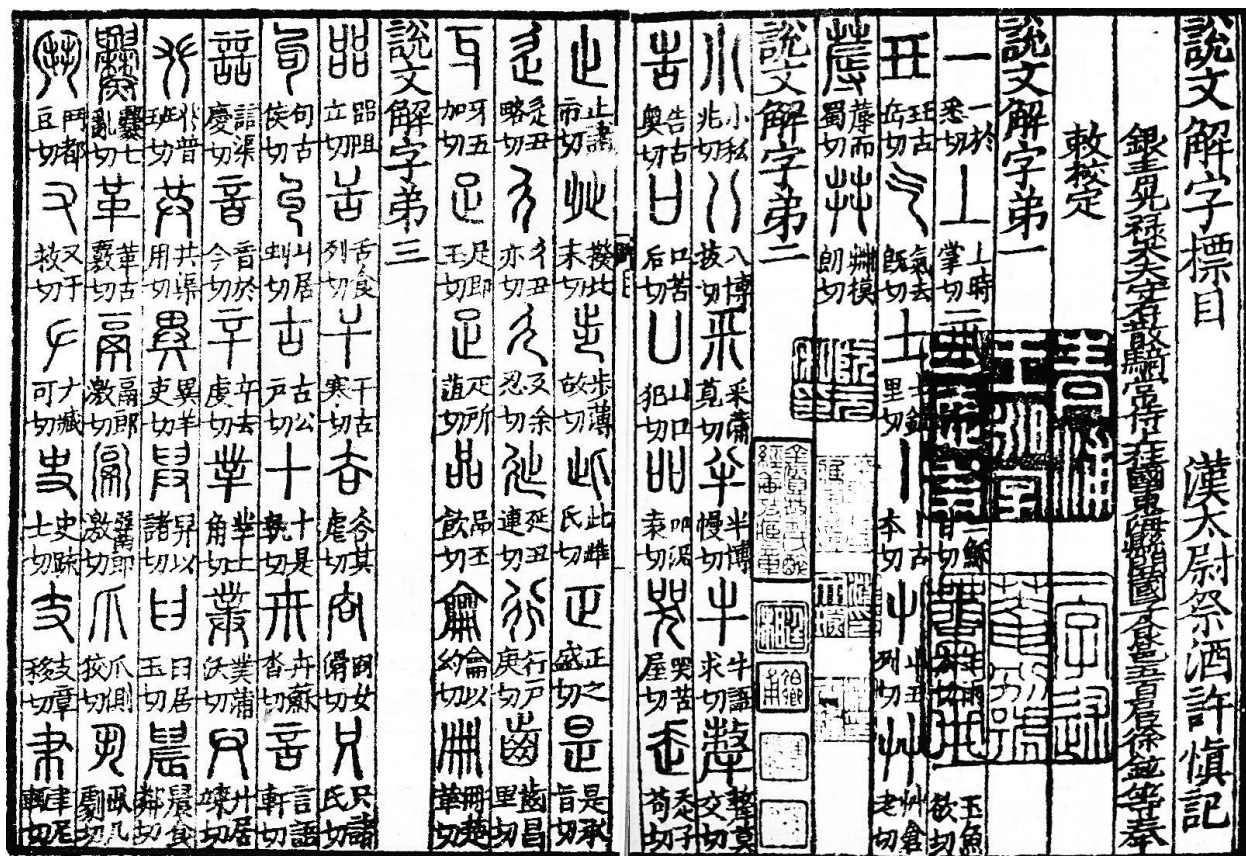 說文解字標目 漢太尉祭酒許慎記
銀青光祿大夫守右散騎常侍上柱國東海縣開國子食邑五百户徐鉉等奉
敕校定
說文解字弟一
一 一於悉切 丄 上時掌切 示 三 穌甘切 王 玉 玉魚欲切
玨 玨古岳切 气 气去旣切 士 士鉏里切 丨 丨古本切 屮 屮丑列切 艸 艸倉老切
蓐 蓐而蜀切 茻 茻模朗切
說文解字弟二
小 小私兆切 八 八博拔切 釆 釆蒲莧切 半 半博幔切 牛 牛語求切 犛 犛莫交切
告 告古奥切 口 口苦后切 凵 凵口犯切 吅 吅況袁切 哭 哭苦屋切 走 走子苟切
止 止諸市切 癶 癶北末切 步 步薄故切 此 此雌氏切 正 正之盛切 是 是承旨切
辵 辵丑略切 彳 彳丑亦切 廴 廴余忍切 㢟 延丑連切 行 行户庚切 齒 齒昌里切
牙 牙五加切 足 足即玉切 疋 疋所菹切 品 品丕飲切 龠 龠以約切 冊 冊楚革切
說文解字弟三
㗊 㗊阻立切 舌 舌食列切 干 干古寒切 𧮫 𧮫其虐切 㕯 㕯女滑切 只 只諸氏切
句 句古侯切 丩 丩居虯切 古 古公户切 十 十是執切 卅 卅蘇沓切 言 言語軒切
誩 誩渠慶切 音 音於今切 䇂 䇂去虔切 丵 丵士角切 菐 菐蒲沃切 廾 廾居竦切
𠬜 𠬜普班切 共 共渠用切 異 異羊吏切 舁 舁以諸切 𦥑 𦥑居玉切 晨 晨食鄰切
爨 爨七亂切 革 革古覈切 鬲 鬲郎激切 䰜 䰜郎激切 爪 爪側狡切 丮 丮几劇切
鬥 鬥都豆切 又 又于救切 𠂇 𠂇臧可切 史 史疏士切 支 支章移切 𦘒 𦘒尼輒切